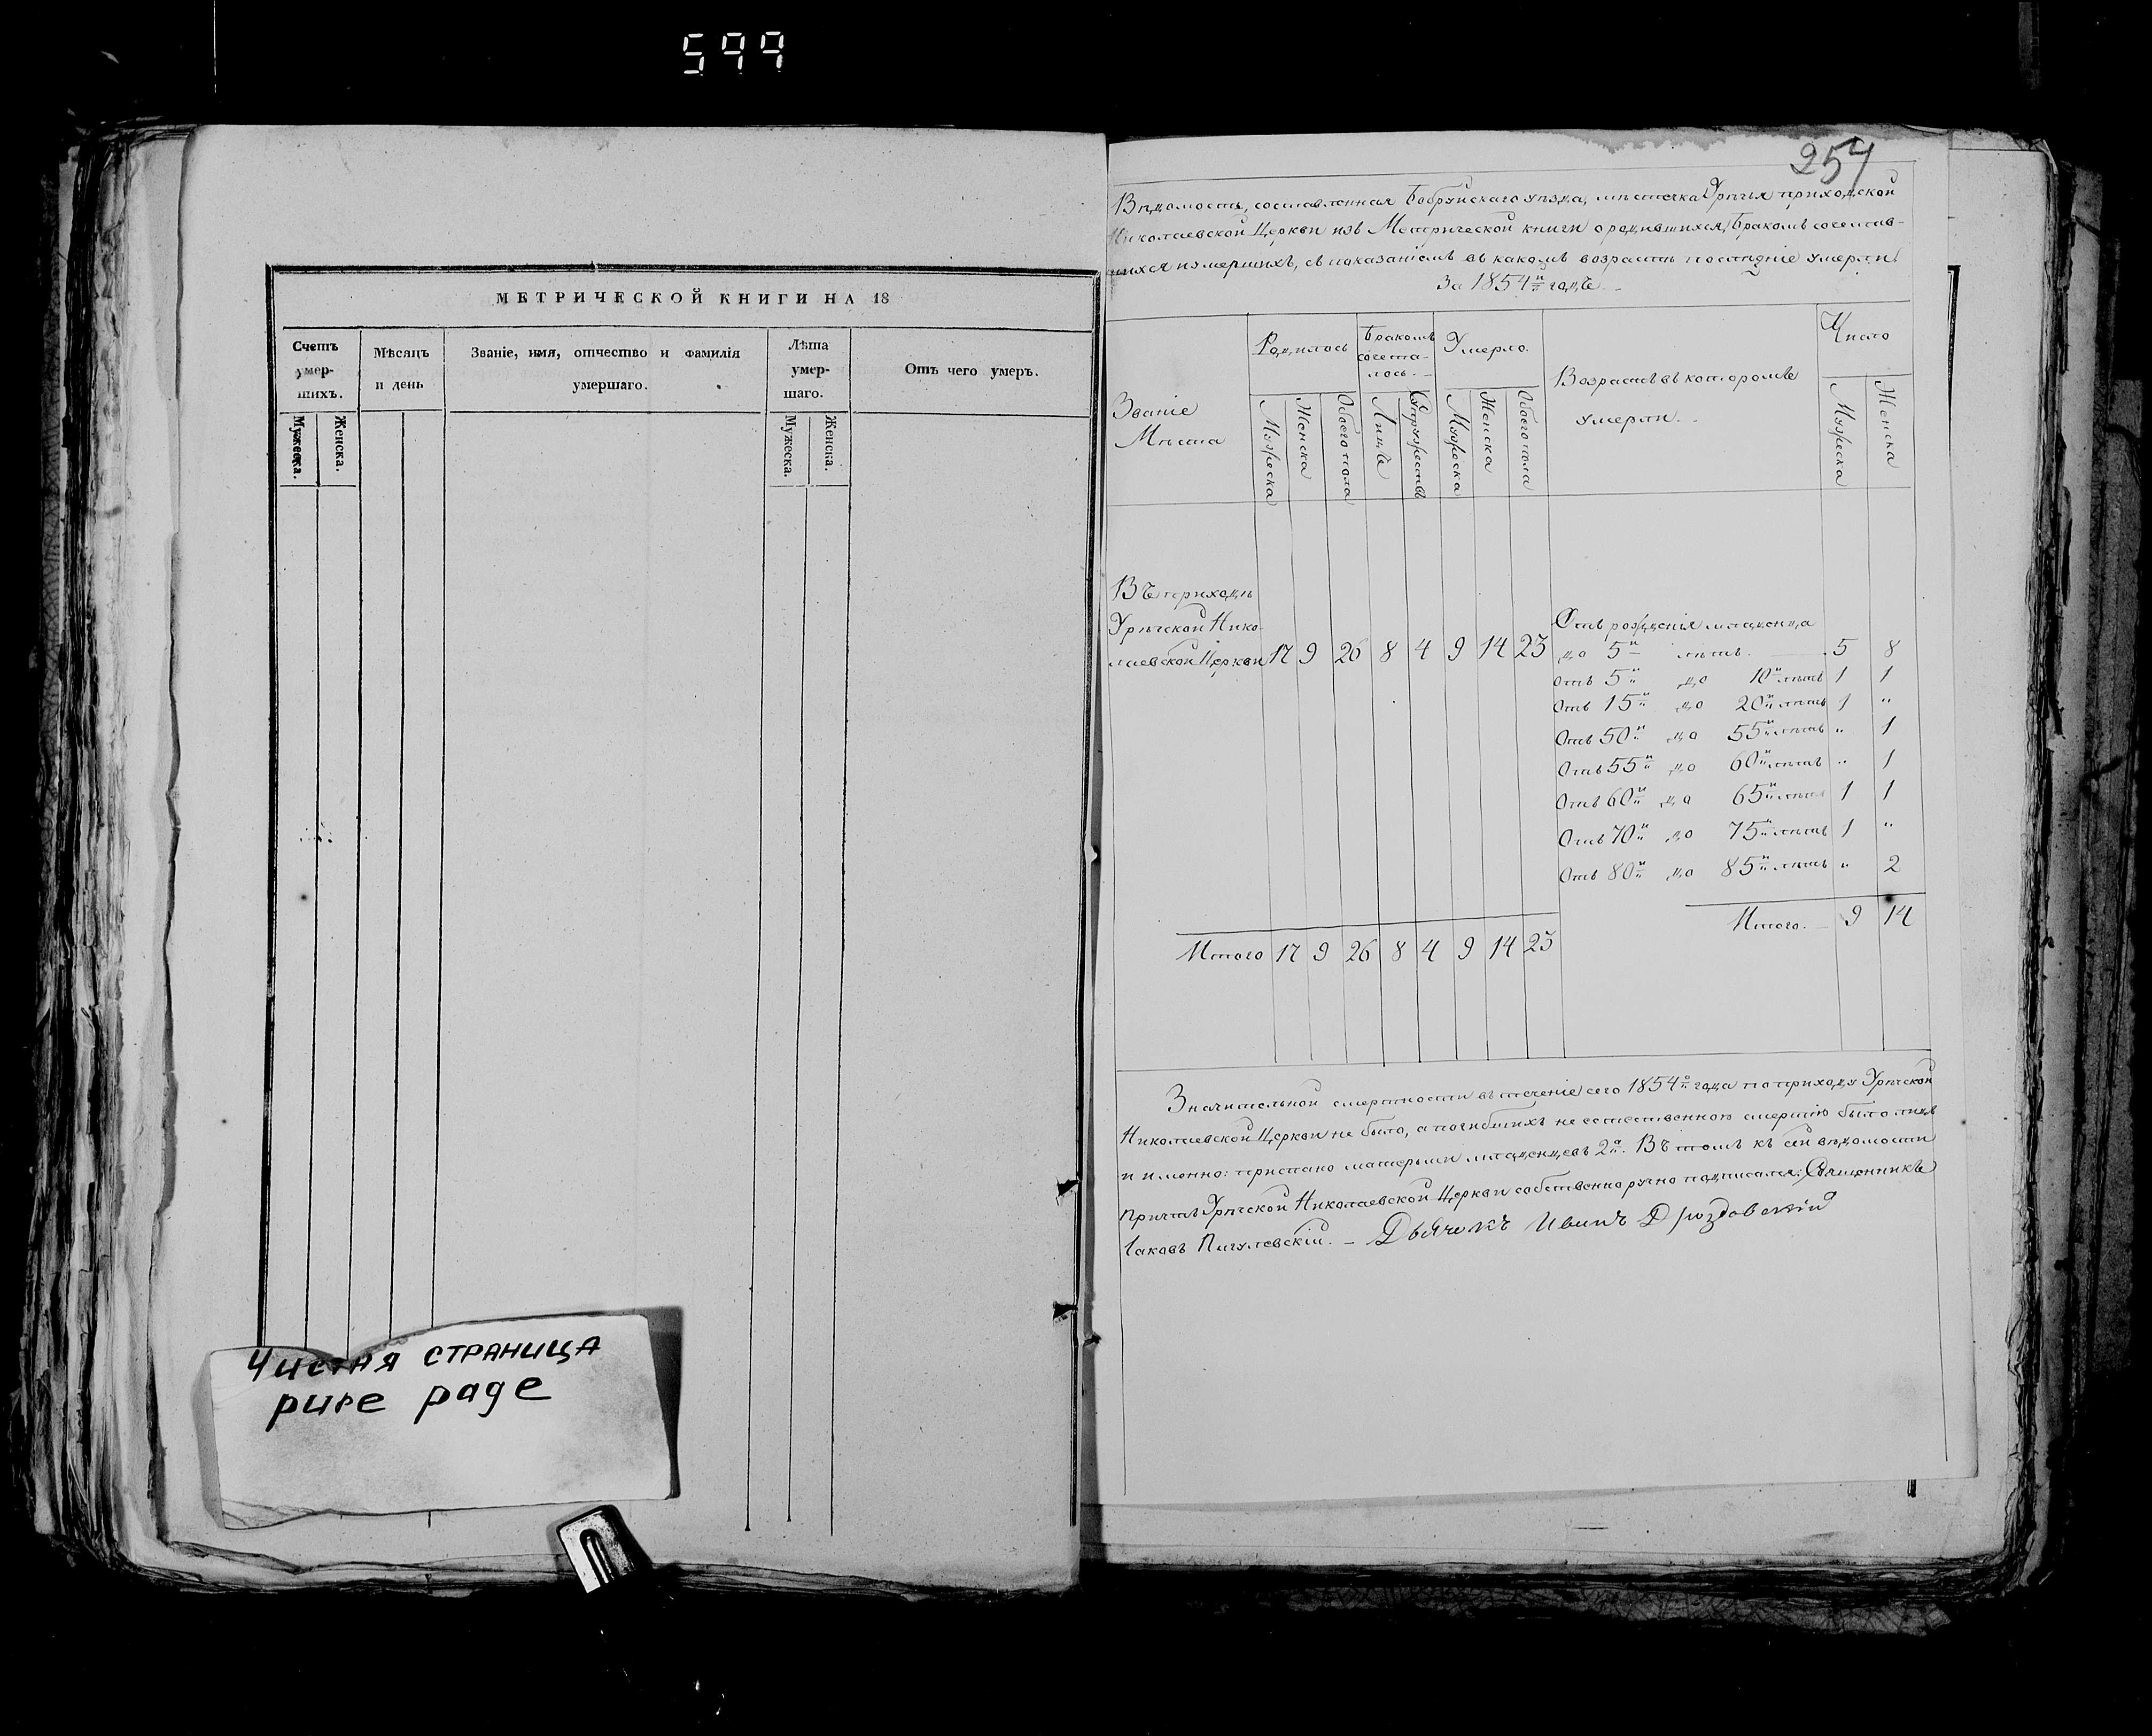 599
МЕТРИЧЕСКОЙ КНИГИ НА 18
Счетъ умер- шихъ.
Мѣсяцъ и день
Званіе, имя, отчество и фамилія умершаго.
Лѣта умер- шаго.
Отъ чего умеръ.
Мужеска.
Женска.
Мужеска.
Женска.
Чистая страница
pure page
257
Вѣдомость, составленная Бобруйскаго уѣзда, мѣстечка Урѣчья приходской
Николаевской Церкви изъ Метрической книги о родившихся, Бракомъ сочетав-
шихся и умершихъ, съ показаніемъ въ какомъ возрастѣ послѣдніе умерли
За 1854й годъ.
Званіе Мѣста
Родилось
Бракомъ сочета- лось.
Умерло.
Возрастъ въ которомъ умерли.
Число
Мужеска
Женска
Обоего пола
Лицъ
Супружествъ
Мужеска
Женска
Обоего пола
Мужеска
Женска
Въ приходѣ
Урѣчской Нико-
лаевской Церкви 17 9 26 8 4 9 14 23
Отъ рожденія младенца
до 5и лѣтъ. 5 8
Отъ 5и до 10и лѣтъ 1 1
Отъ 15и до 20и лѣтъ 1 "
Отъ 50и до 55и лѣтъ " 1
Отъ 55и до 60и лѣтъ " 1
Отъ 60и до 65и лѣтъ 1 1
Отъ 70и до 75и лѣтъ 1 "
Отъ 80и до 85и лѣтъ " 2
Итого. 9 14
Итого 17 9 26 8 4 9 14 23
Значительной смертности въ теченіе сего 1854го года по приходу Урѣчской
Николаевской Церкви не было, а погибшихъ не естественною смертію было
и именно: приспано матерьми младенцевъ 2а. Въ томъ къ сей вѣдомости
Причтъ Урѣчской Николаевской Церкви собственноручно подписался: Священникъ
Іаковъ Пигулевскій. — Дьячекъ Иванъ Дроздовскій